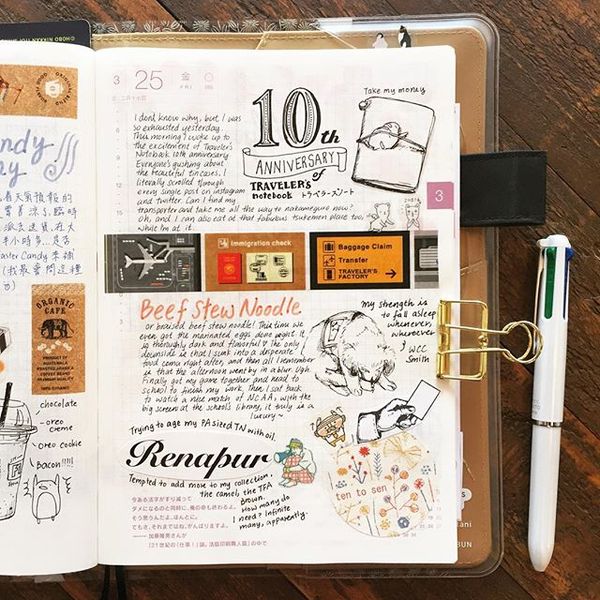 Candy
ORGANIC
CAFE
chocolate
oreo
creme
oreo cookie
Bacon!!!!
3 25 金
FRI
I dont know why, but I was
so exhausted yesterday.
This morning I woke up to
the excitement of Traveler's
Notebook 10th anniversary
Everyone's gushing about
the beautiful tin cases. I
literally scrolled through
every single post on instagram
and twitter. Can I find my
transporter and take me all the way to nakameguro now?
Oh, and I can also eat at that fabulous tsukemen place too,
while I'm at it.
10th
ANNIVERSARY
OF
TRAVELER'S
notebook トラベラーズノート
Take my money
3
immigration check
Baggage Claim
Transfer
TRAVELER'S
FACTORY
Beef Stew Noodle
or braised beef stew noodle! This time we
even got the marinated eggs done right. It
is thoroughly dark and flavorful! The only
downside is that I sunk into a desperate
food coma right after, and then all I remember
is that the afternoon went by in a blur. Ugh.
Finally got my game together and head to
school to finish my work. Then I sat back
to watch a nice match of NCAA, with the
big screen at the school's library, it truly is a
luxury~
my strength is
to fall asleep
whenever,
wherever
WCC
Smith
Trying to age my PA sized TN with oil.
Renapur
Tempted to add more to my collection.
the camel, the TFA
Brown.
How many do
I need? Infinite
many, apparently.
ten to sen
今ある活字がすり減って
ダメになるのと同時に、俺の命も終わるよ。
そう思うんだよ。ほんとに。
でもさ、それまではね、がんばりますよ。